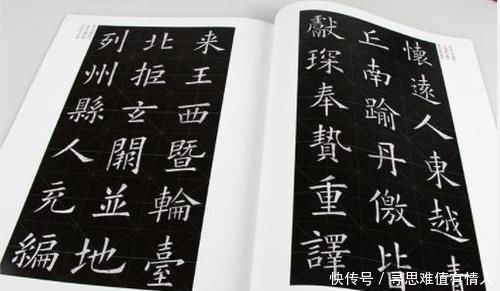 懷遠人東越青
丘南踰丹徼皆
獻琛奉贄重譯
来王西暨輪臺
北拒玄闕並地
列州縣人充編
快传号 / 思难值有情人